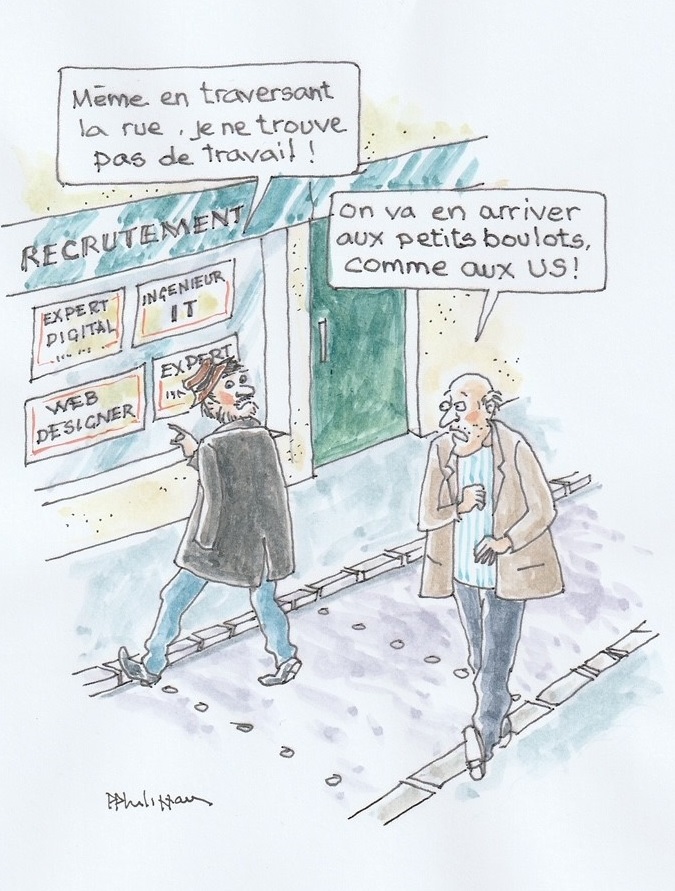 Même en traversant
la rue, je ne trouve
pas de travail !
on va en arriver
aux petits boulots,
comme aux US!
RECRUTEMENT
EXPERT
DIGITAL
INGENIEUR
IT
WEB
DESIGNER
EXPERT